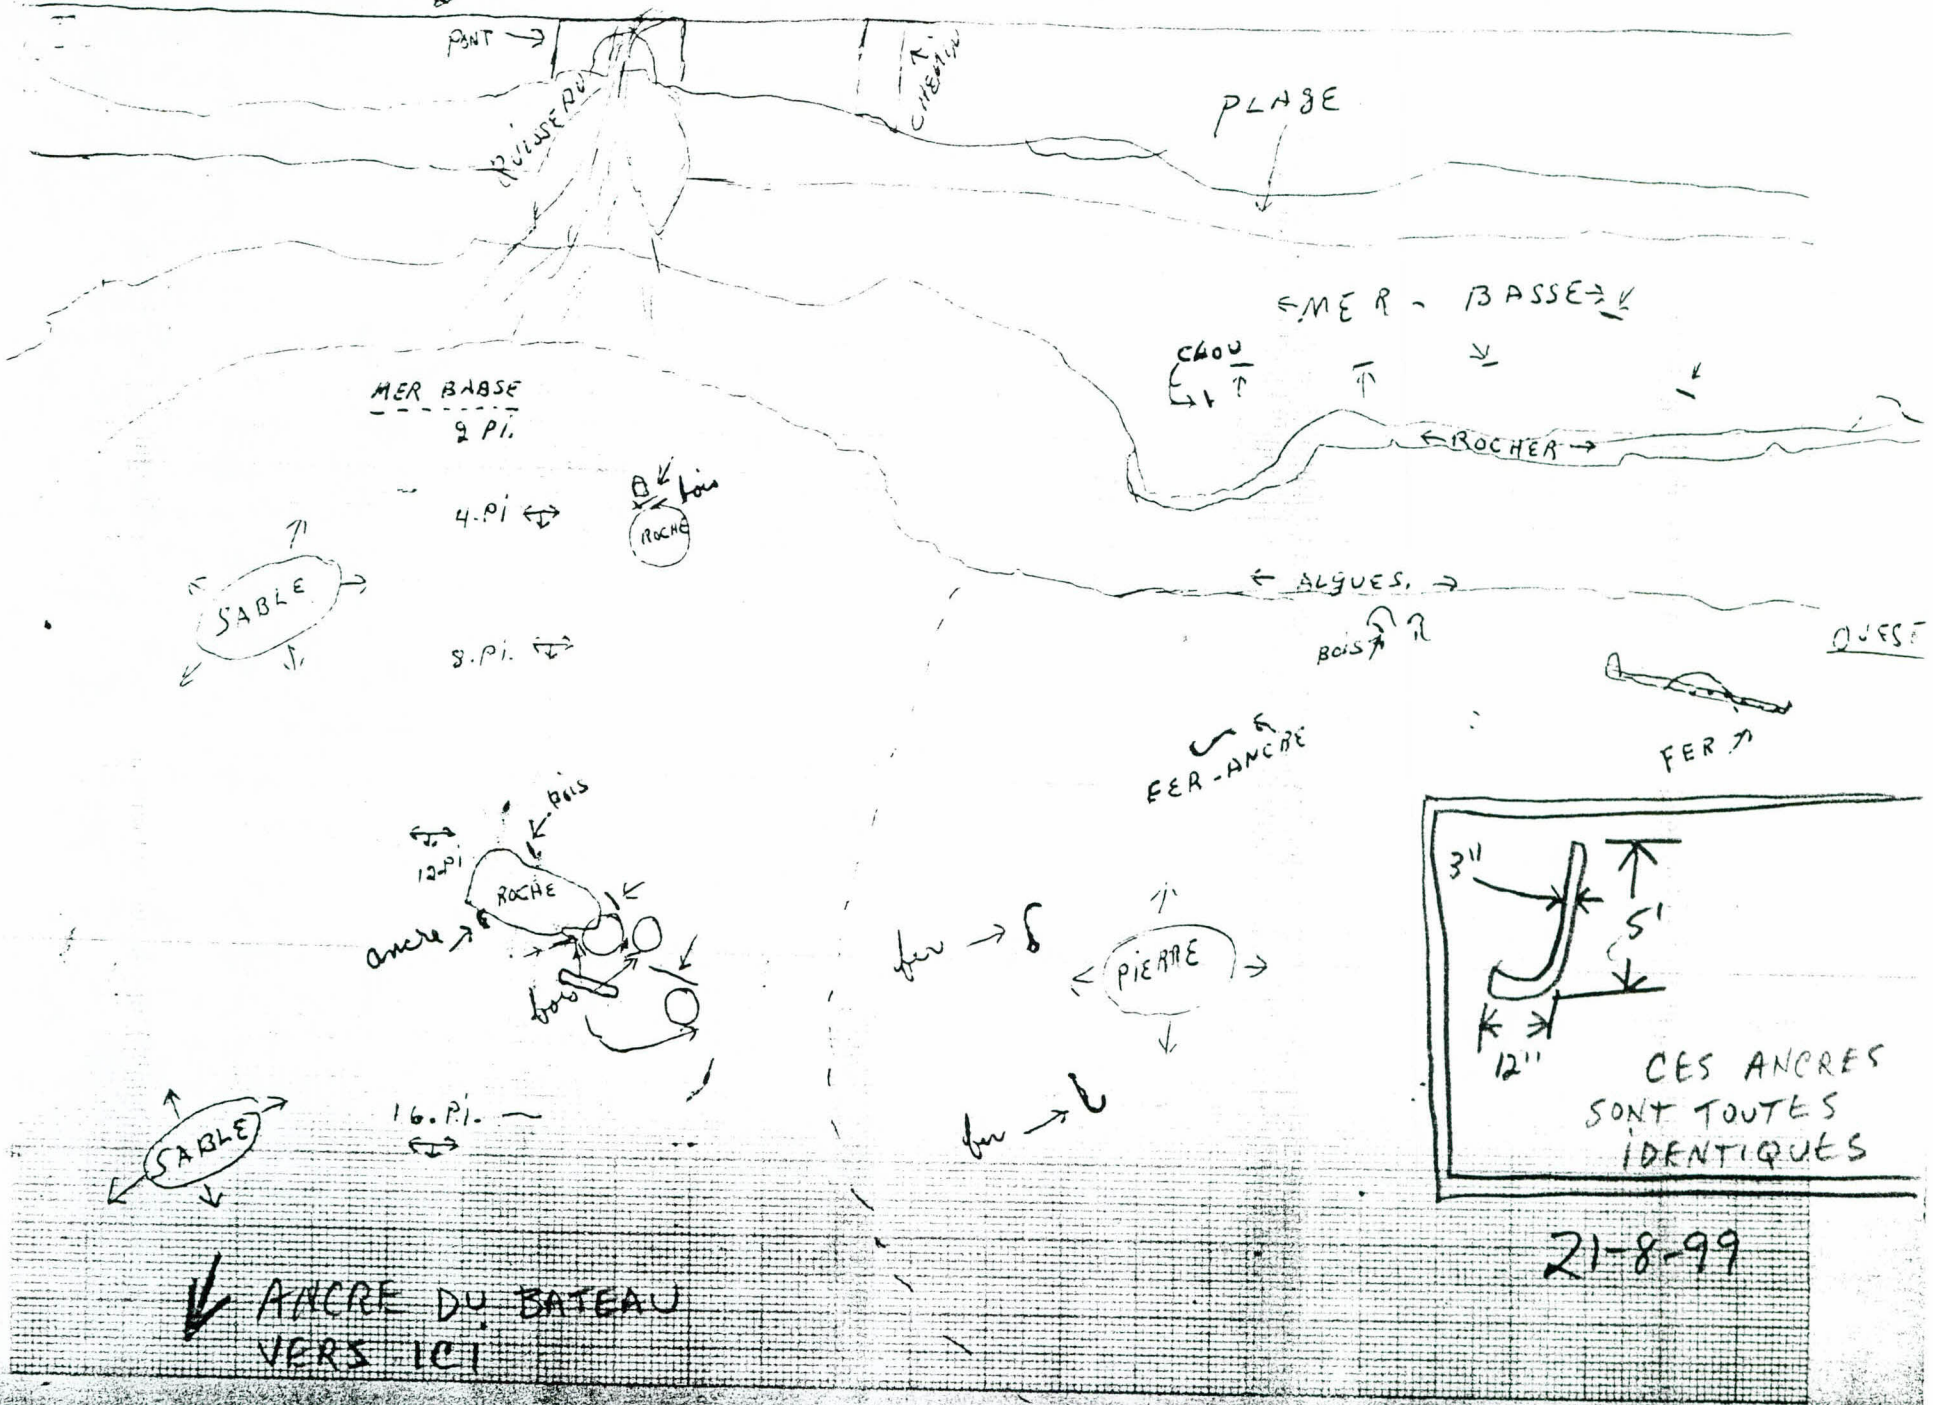 PONT
RUISSEAU
CHEMIN
PLAGE
MER - BASSE
CHOU
MER BASSE
2 PI.
ROCHER
4.PI
B
bois
ROCHE
SABLE
ALGUES.
BOIS
OUEST
8.PI.
FER-ANCRE
FER
bois
12.PI
ROCHE
ancre
bois
fer
PIERRE
3"
5'
12"
CES ANCRES
SONT TOUTES
IDENTIQUES
16.PI.
SABLE
fer
21-8-99
ANCRE DU BATEAU
VERS ICI